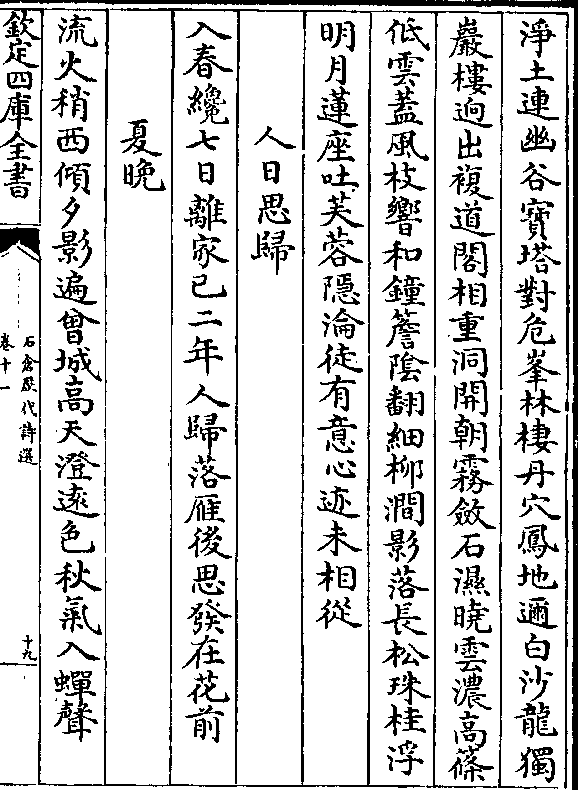 淨土連幽谷寶塔對危峯林棲丹穴鳳地邇白沙龍獨
巖樓逈出複道閣相重洞開朝霧斂石濕曉雲濃高篠
低雲蓋風枝響和鐘簷陰翻細柳澗影落長松珠桂浮
明月蓮座吐芙蓉隱淪徒有意心迹未相從
人日思歸
入春纔七日離家已二年人歸落雁後思發在花前
夏晚
流火稍西傾夕影遍曾城高天澄遠色秋氣入蟬聲
欽定四庫全書
石倉歷代詩選
卷十一
十九